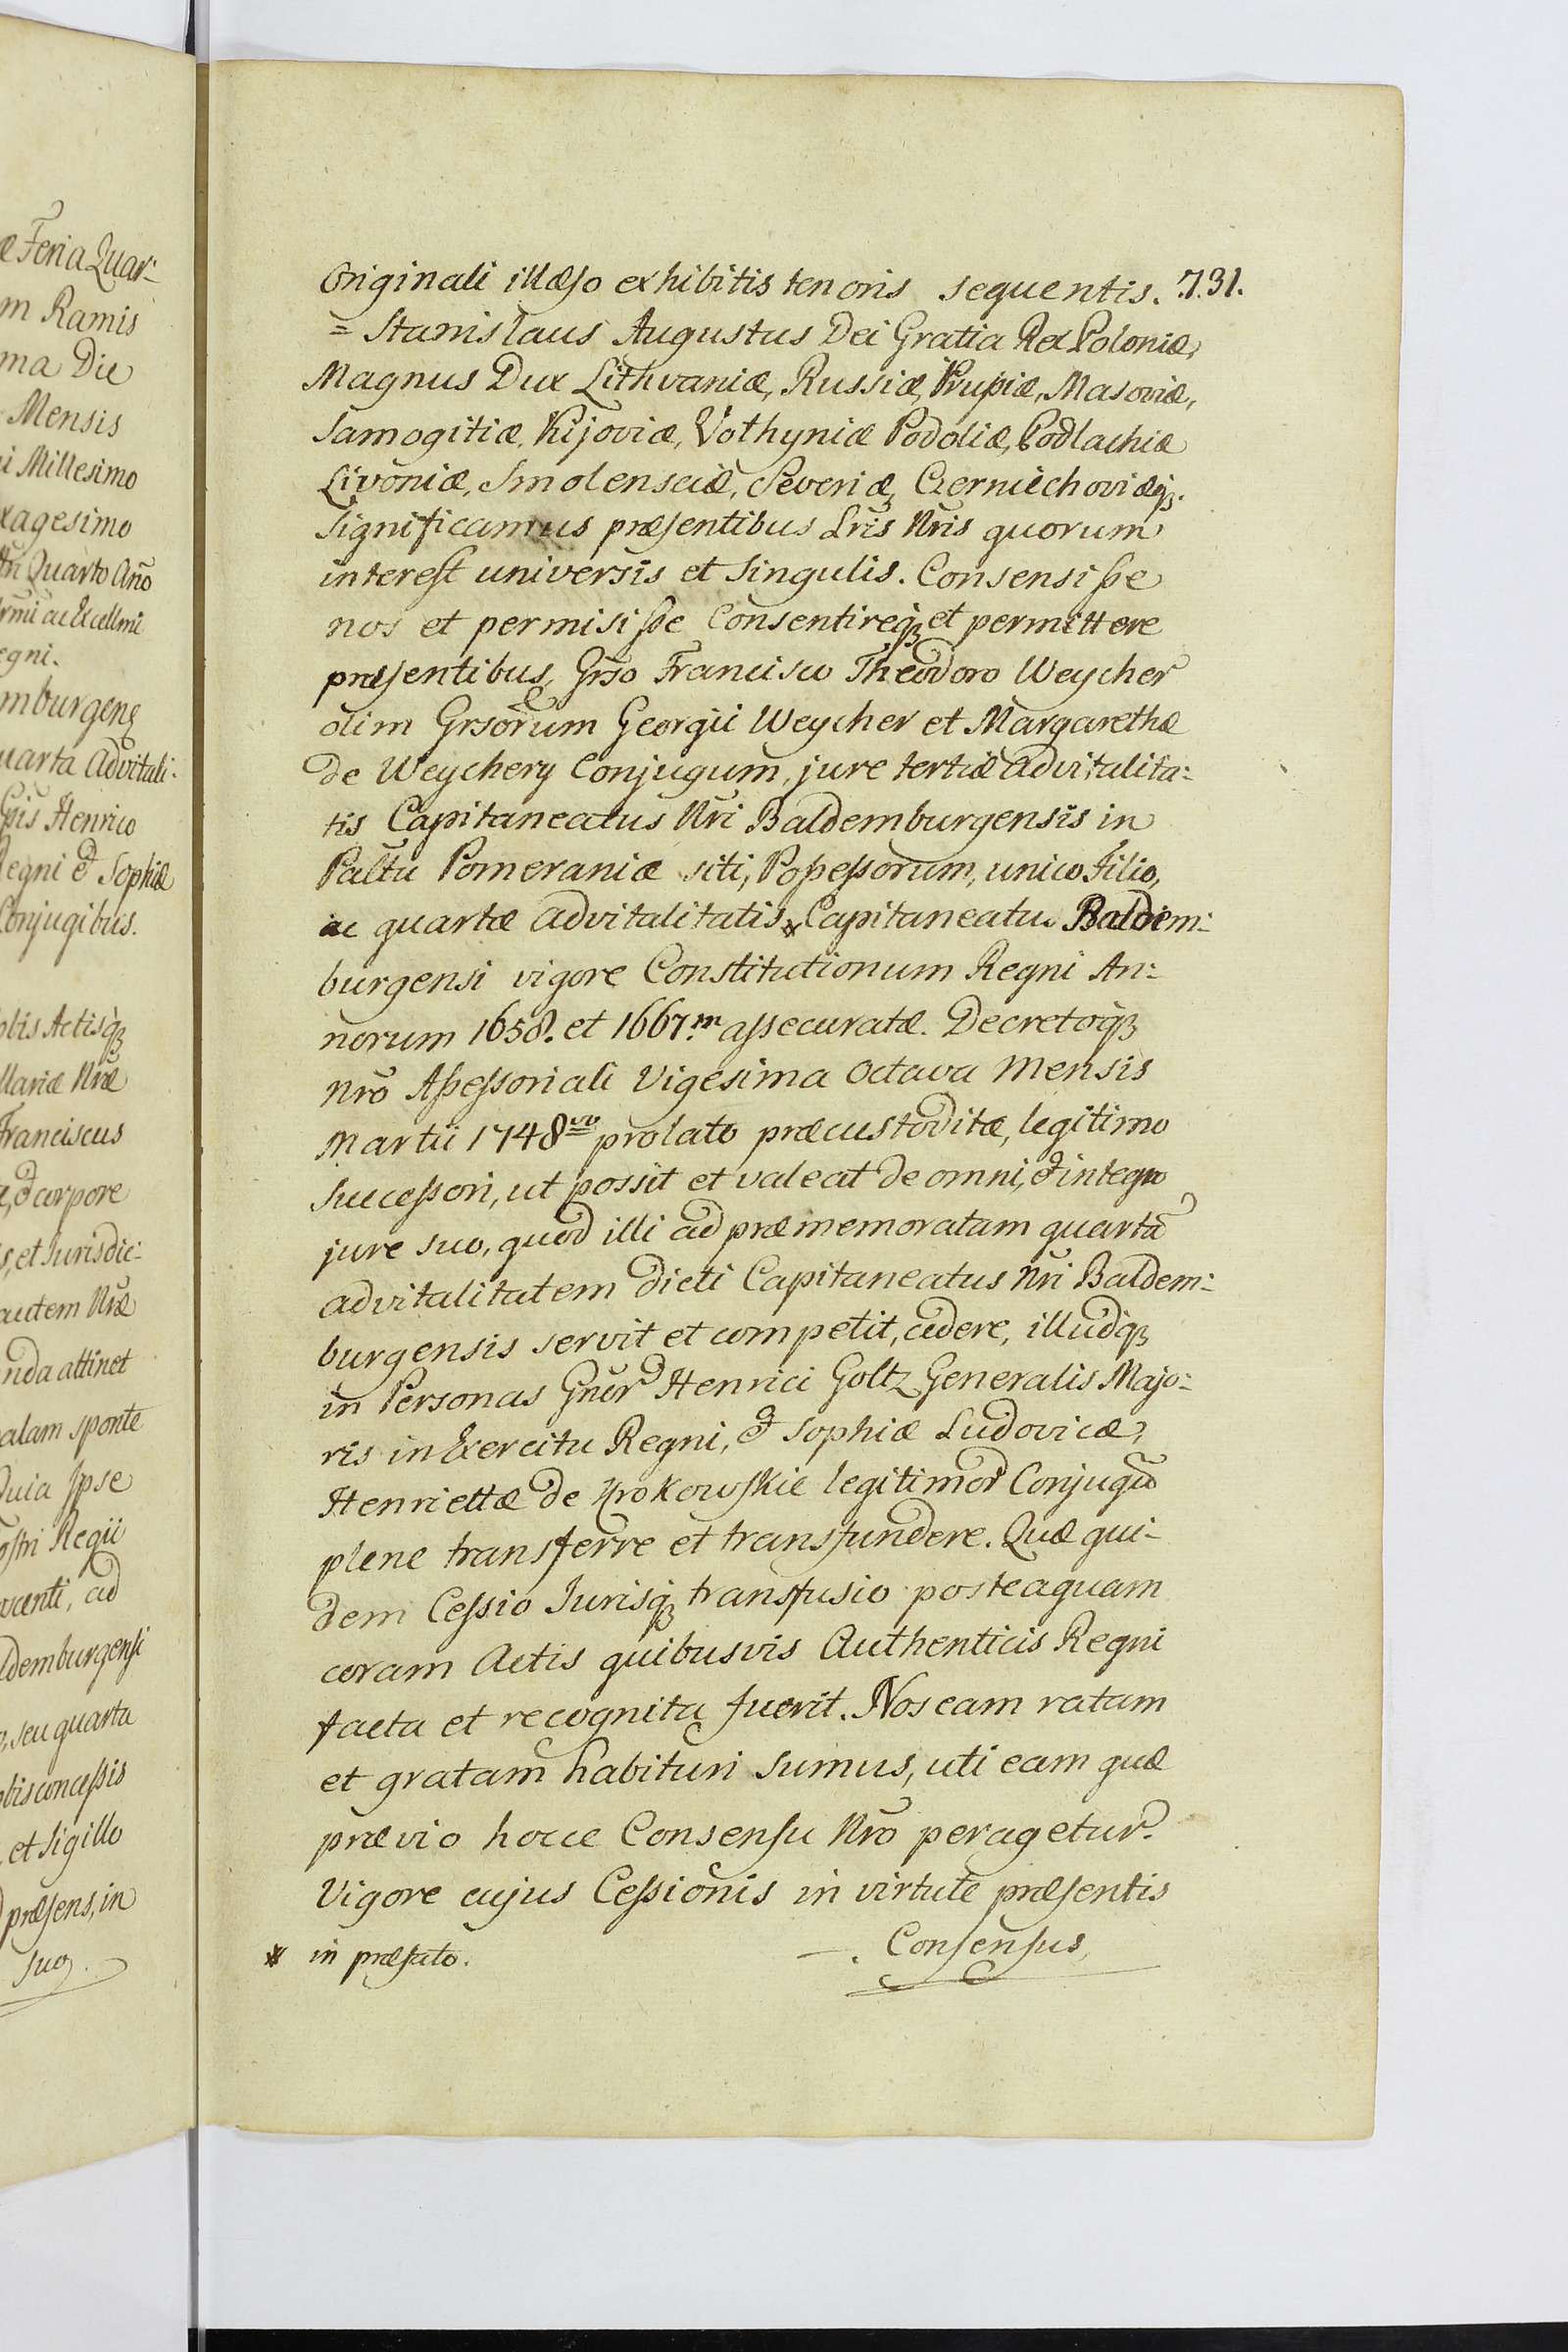 æ Feria Quar-
m Ramis
ma Die
Mensis
i Millesimo
xagesimo
Quarto Año
ac Excellmi
egni.
mburgenz
uarta Advitali-
Henrico
Regni & Sophiæ
Conjugibus.
obis Actisq3
llariæ Nræ
Franciscus
, & corpore
s, et Jurisdic-
autem Nræ
nda attinet
alam sponte
Quia Ipse
ostri Regii
ad
demburgensi
, seu quarta
obis concessis
et Sigillo
præsens, in
suo
Originali illæso exhibitis tenoris sequentis. 731.
= Stanislaus Augustus Dei Gratia Rex Poloniæ,
Magnus Dux Lithvaniæ, Russiæ, Prussiæ, Masoviæ,
Samogitiæ, Kijoviæ, Volhyniæ Podoliæ, Podlachiæ
Livoniæ, Smolensciæ, Severiæ, Czerniechoviæq3.
Significamus præsentibus Lris Nris quorum
interest universis et Singulis. Consensisse
nos et permisisse Consentireq3 et permittere
præsentibus, Grso Francisco Theodoro Weycher
olim Grsorum Georgii Weycher et Margarethæ
de Weychery Conjugum, jure tertiæ Advitalita-
tis Capitaneatus Nri Baldemburgensis in
Paltu Pomeraniæ siti, Possessorum, unico Filio,
ac quartæ Advitalitatis * Capitaneatu Baldem-
burgensi vigore Constitutionum Regni An-
norum 1658. et 1667.m assecuratæ. Decretoq3
Nro Assessoriali Vigesima Octava Mensis
Martii 1748vo prolato præcustoditæ, legitimo
Successori, ut possit et valeat de omni, & integro
jure suo, quod illi ad præmemoratam quartã
advitalitatem dicti Capitaneatus Nri Baldem-
burgensis servit et competit, cedere, illudq3
in Personas Gnor Henrici Goltz Generalis Majo-
ris in Exercitu Regni, & Sophiæ Ludovicæ,
Henriettæ de Krokowskie legitimor Conjugũ
plene transferre et transfundere. Quæ qui-
dem Cessio Jurisq3 transfusio posteaquam
coram Actis quibusvis Authenticis Regni
facta et recognita fuerit. Nos eam ratam
et gratam habituri sumus, uti eam quæ
prævio hocce Consensu Nro peragetur.
Vigore cujus Cessionis in virtute præsentis
* in præfato.
Consensus,